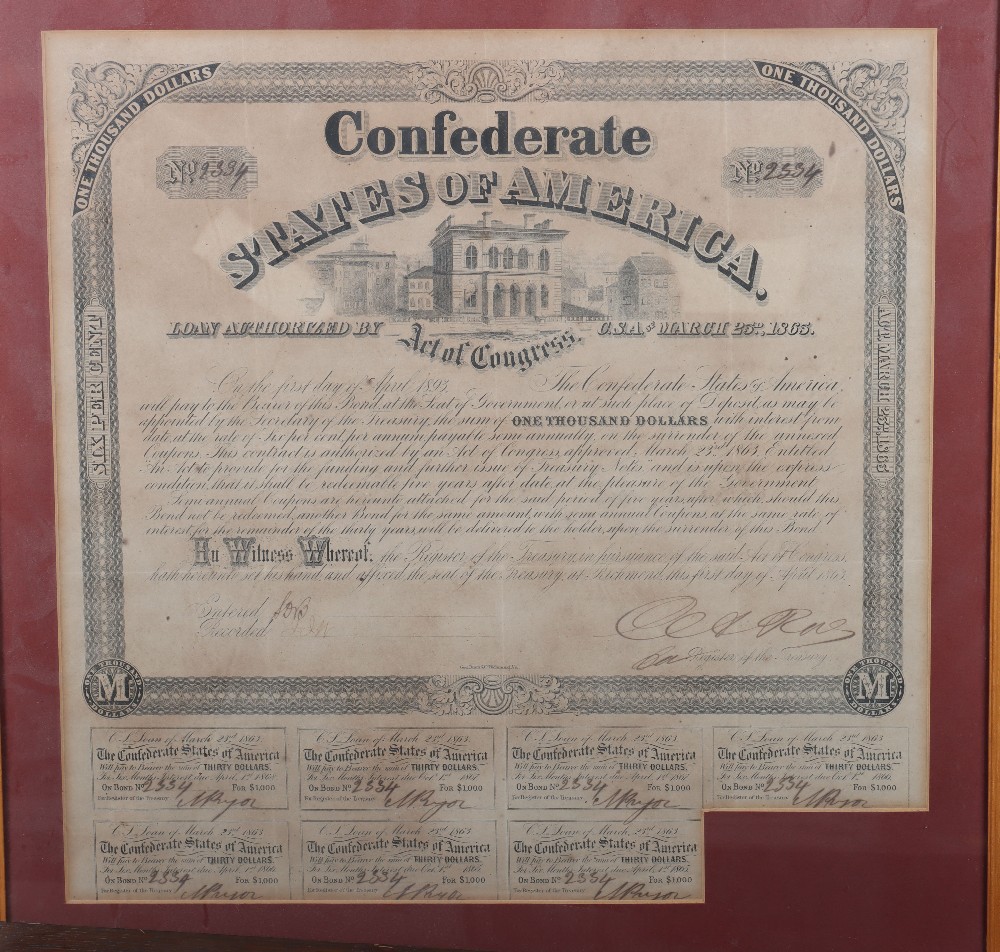 ONE THOUSAND DOLLARS
ONE THOUSAND DOLLARS
Confederate
No 2334
No 2334
STATES OF AMERICA.
LOAN AUTHORIZED BY Act of Congress, C.S.A. OF MARCH 23RD, 1863.
SIX PER CENT
ACT MARCH 23RD, 1863
On the first day of April 1893 The Confederate States of America,
will pay to the Bearer of this Bond, at the Seat of Government, or at such place of Deposit, as may be
appointed by the Secretary of the Treasury, the sum of ONE THOUSAND DOLLARS, with interest from
date, at the rate of Six per cent per annum, payable semi annually, on the surrender of the annexed
Coupons. This contract is authorized by an Act of Congress, approved, March 23rd 1863, Entitled
"An Act to provide for the funding and further issue of Treasury Notes" and is upon the express
condition, that it shall be redeemable five years after date, at the pleasure of the Government.
Semi annual Coupons are hereunto attached for the said period of five years, after which, should this
Bond not be redeemed, another Bond for the same amount, with semi annual Coupons, at the same rate of
interest, for the remainder of the thirty years, will be delivered to the holder, upon the surrender of this Bond
In Witness Whereof, the Register of the Treasury, in pursuance of the said Act of Congress,
hath hereunto set his hand, and affixed the seal of the Treasury, at Richmond, this first day of April 1863.
Entered
Recorded
Register of the Treasury
ONE THOUSAND M DOLLARS
ONE THOUSAND M DOLLARS
C.S. Loan of March 23rd 1863
The Confederate States of America
Will pay to Bearer the sum of THIRTY DOLLARS.
For Six Months Interest due April, 1st
ON BOND No 2334 FOR $1,000
For Register of the Treasury
C.S. Loan of March 23rd 1863
The Confederate States of America
Will pay to Bearer the sum of THIRTY DOLLARS.
For Six Months Interest due Oct. 1st
ON BOND No 2334 FOR $1,000
For Register of the Treasury
C.S. Loan of March 23rd 1863
The Confederate States of America
Will pay to Bearer the sum of THIRTY DOLLARS.
For Six Months Interest due April, 1st
ON BOND No 2334 FOR $1,000
For Register of the Treasury
C.S. Loan of March 23rd 1863
The Confederate States of America
Will pay to Bearer the sum of THIRTY DOLLARS.
For Six Months Interest due Oct. 1st
ON BOND No 2334 FOR $1,000
For Register of the Treasury
C.S. Loan of March 23rd 1863
The Confederate States of America
Will pay to Bearer the sum of THIRTY DOLLARS.
For Six Months Interest due April, 1st
ON BOND No 2334 FOR $1,000
For Register of the Treasury
C.S. Loan of March 23rd 1863
The Confederate States of America
Will pay to Bearer the sum of THIRTY DOLLARS.
For Six Months Interest due
ON BOND No 2334 FOR $1,000
For Register of the Treasury
C.S. Loan of March 23rd 1863
The Confederate States of America
Will pay to Bearer the sum of THIRTY DOLLARS.
For Six Months Interest due April, 1st
ON BOND No 2334 FOR $1,000
For Register of the Treasury